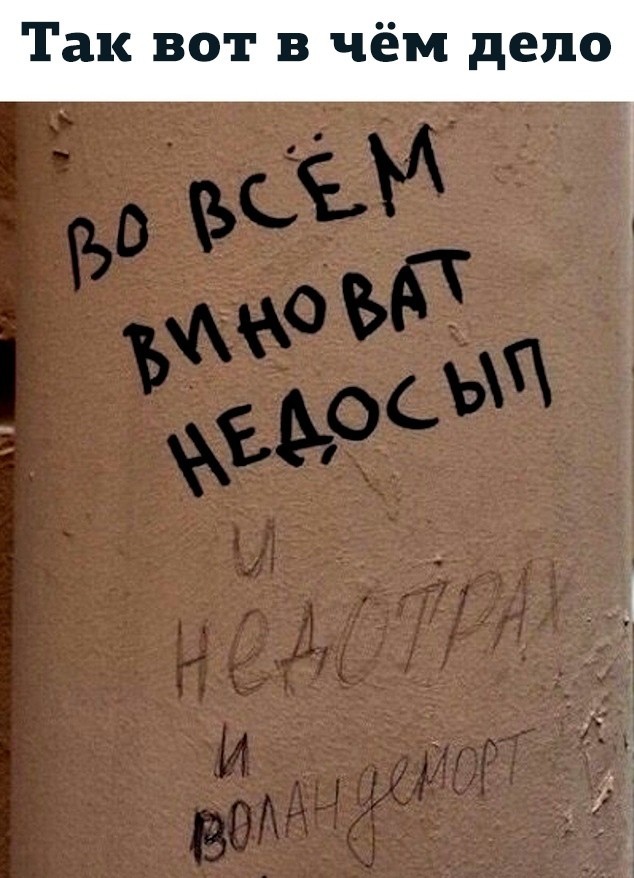 Так вот в чём дело
ВО ВСЁМ
ВИНОВАТ
НЕДОСЫП
И
НЕДОТРАХ
И
ВОЛАНдеМОРТ